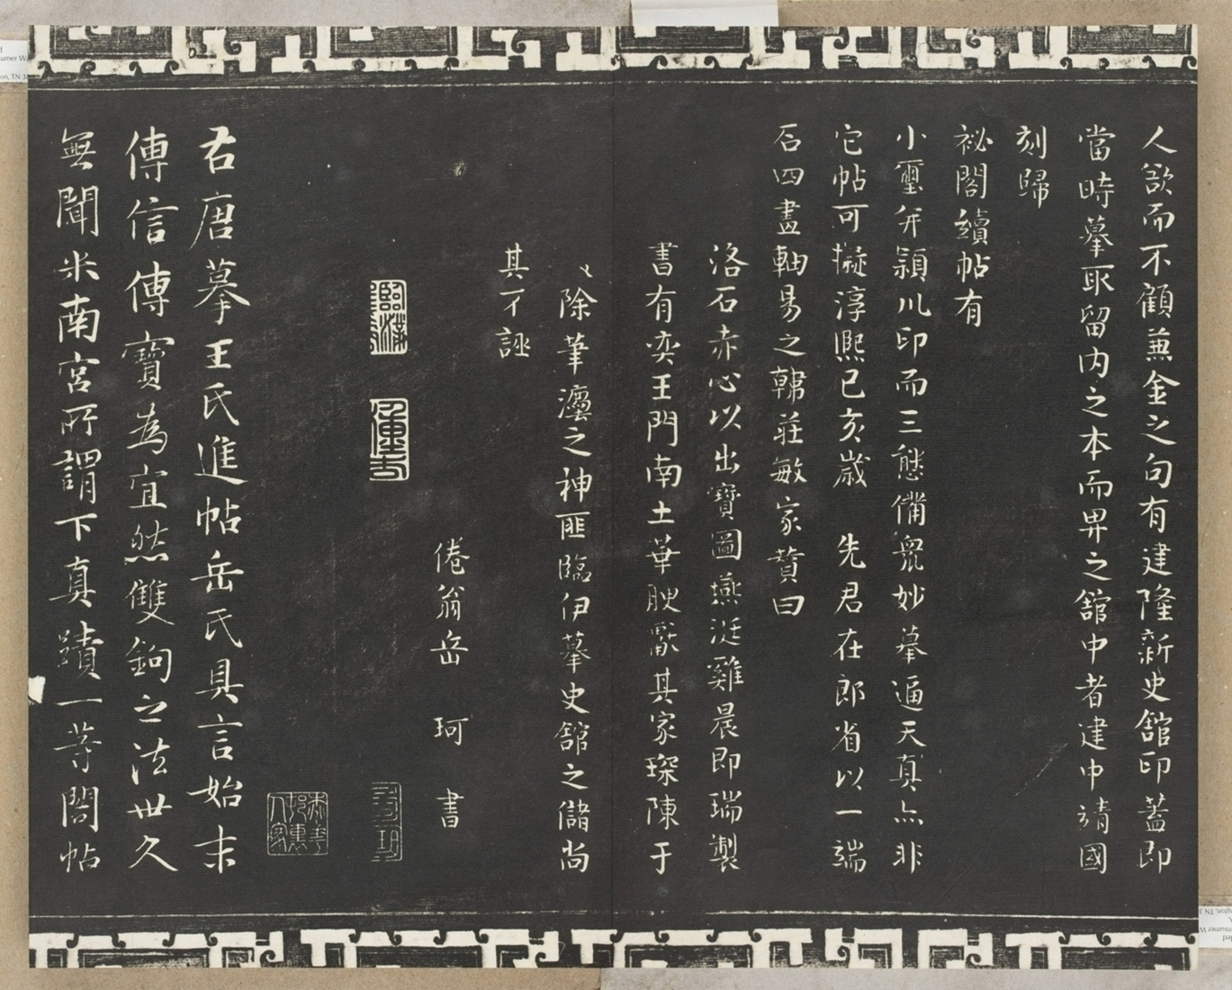 人欲而不顧蒹金之句有建隆新史館印蓋即
當時摹取留內之本而畀之館中者建中靖國
刻歸
祕閣續帖有
小璽并潁川印而三態備衆妙摹逼天真亦非
它帖可擬淳熙己亥歲 先君在郎省以一端
石四畫軸易之韓莊敏家贊曰
洛石赤心以出寶圖燕涎雞晨即瑞製
書有奕王門南土華腴猒其家琛陳于
除筆瀍之神匪臨伊摹史館之儲尚
其不誣
倦翁岳珂書
右唐摹王氏進帖岳氏具言始末
傳信傳寶為宜然雙鉤之法世久
無聞米南宮所謂下真蹟一等閣帖